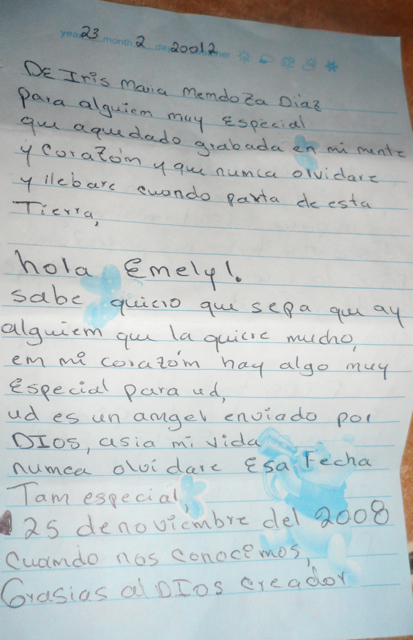 year 23 month 2 day 20012
DE Iris Maria Memdoza Diaz
para alguiem muy Especial
que aquedado grabada en mi mente
y corazóm y que nunca olvidare
y llebare cuondo parta de esta
Tierra,
hola Emely!.
sabe quiero que sepa que ay
alguiem que la quiere mucho,
em mi corazóm hay algo muy
Especial para ud,
ud es un amgel enviado por
DIos, asia mi vida
numca olvidare Esa Fecha
Tam especial,
25 de noviembre del 2008
cuamdo nos conocemos,
Grasias al DIos creador